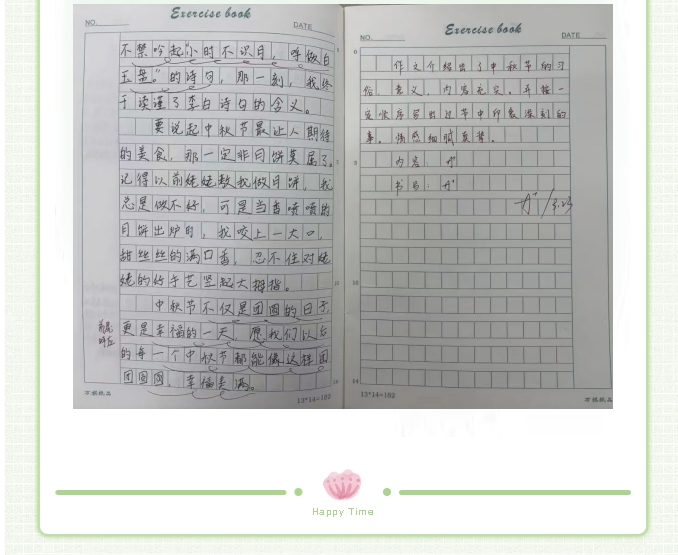 Exercise book
NO.
DATE
不禁吟起"小时不识月，呼做白
玉盘。"的诗句，那一刻，我终
于读懂了李白诗句的含义。
要说起中秋节最让人期待
的美食，那一定非月饼莫属了。
记得以前姥姥教我做月饼，我
总是做不好，可是当香喷喷的
月饼出炉时，我咬上一大口，
甜丝丝的满口香，忍不住对姥
姥的好手艺竖起大拇指。
中秋节不仅是团圆的日子
更是幸福的一天，愿我们以后
的每一个中秋节都能像这样团
团圆圆，幸福美满。
首尾
呼应
万祺纸品
13*14=182
Exercise book
NO.
DATE
作文介绍出了中秋节的习
俗，意义，内容充实，并按一
定顺序写出过节中印象深刻的
事，情感细腻真挚。
内容：A+
书写：A+
A+ / 3.23
13*14=182
万祺纸品
Happy Time